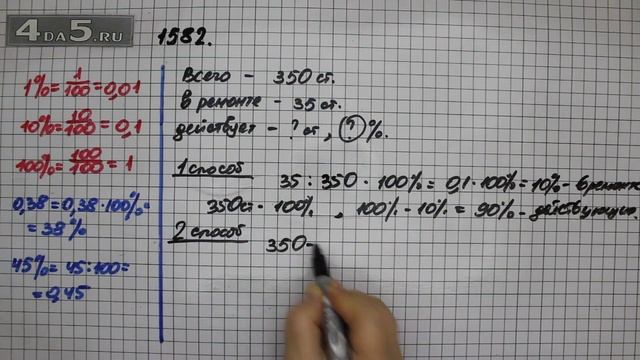 4DA5.RU
1582.
1% = 1/100 = 0,01
10% = 10/100 = 0,1
100% = 100/100 = 1
0,38 = 0,38 · 100% =
= 38%
45% = 45 : 100 =
= 0,45
Всего - 350 ст.
в ремонте - 35 ст.
действует - ? ст, ? %.
1 способ
35 : 350 · 100% = 0,1 · 100% = 10% - в ремонте
350 ст - 100% , 100% - 10% = 90% - действующие.
2 способ
350 -